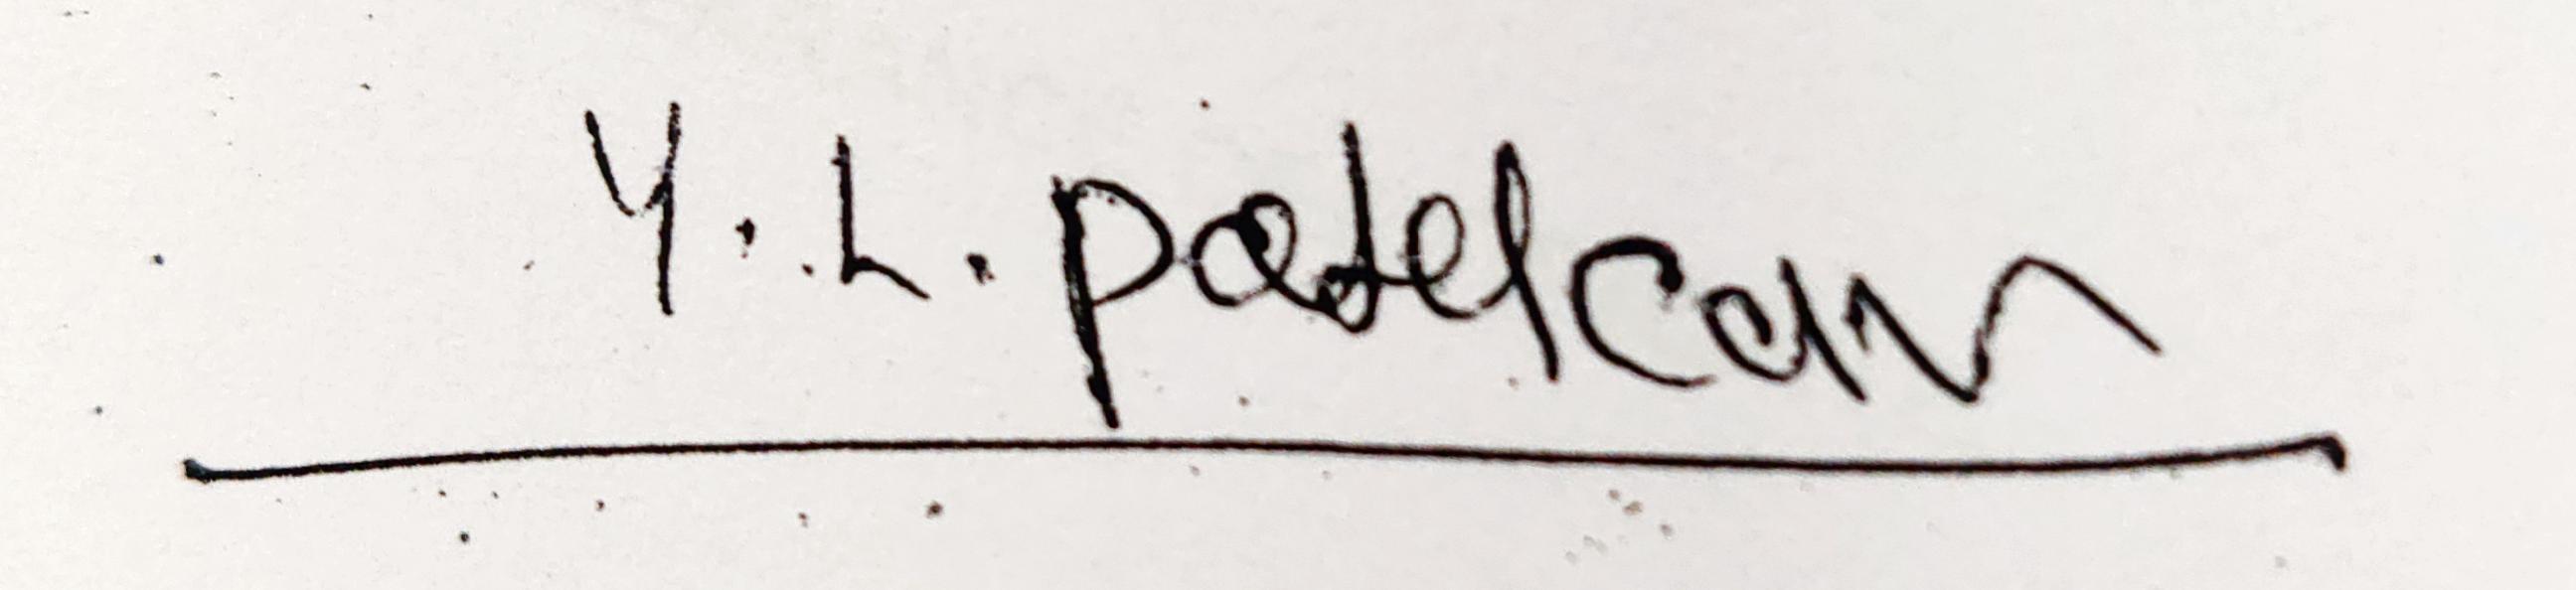 Y. L. patelcan